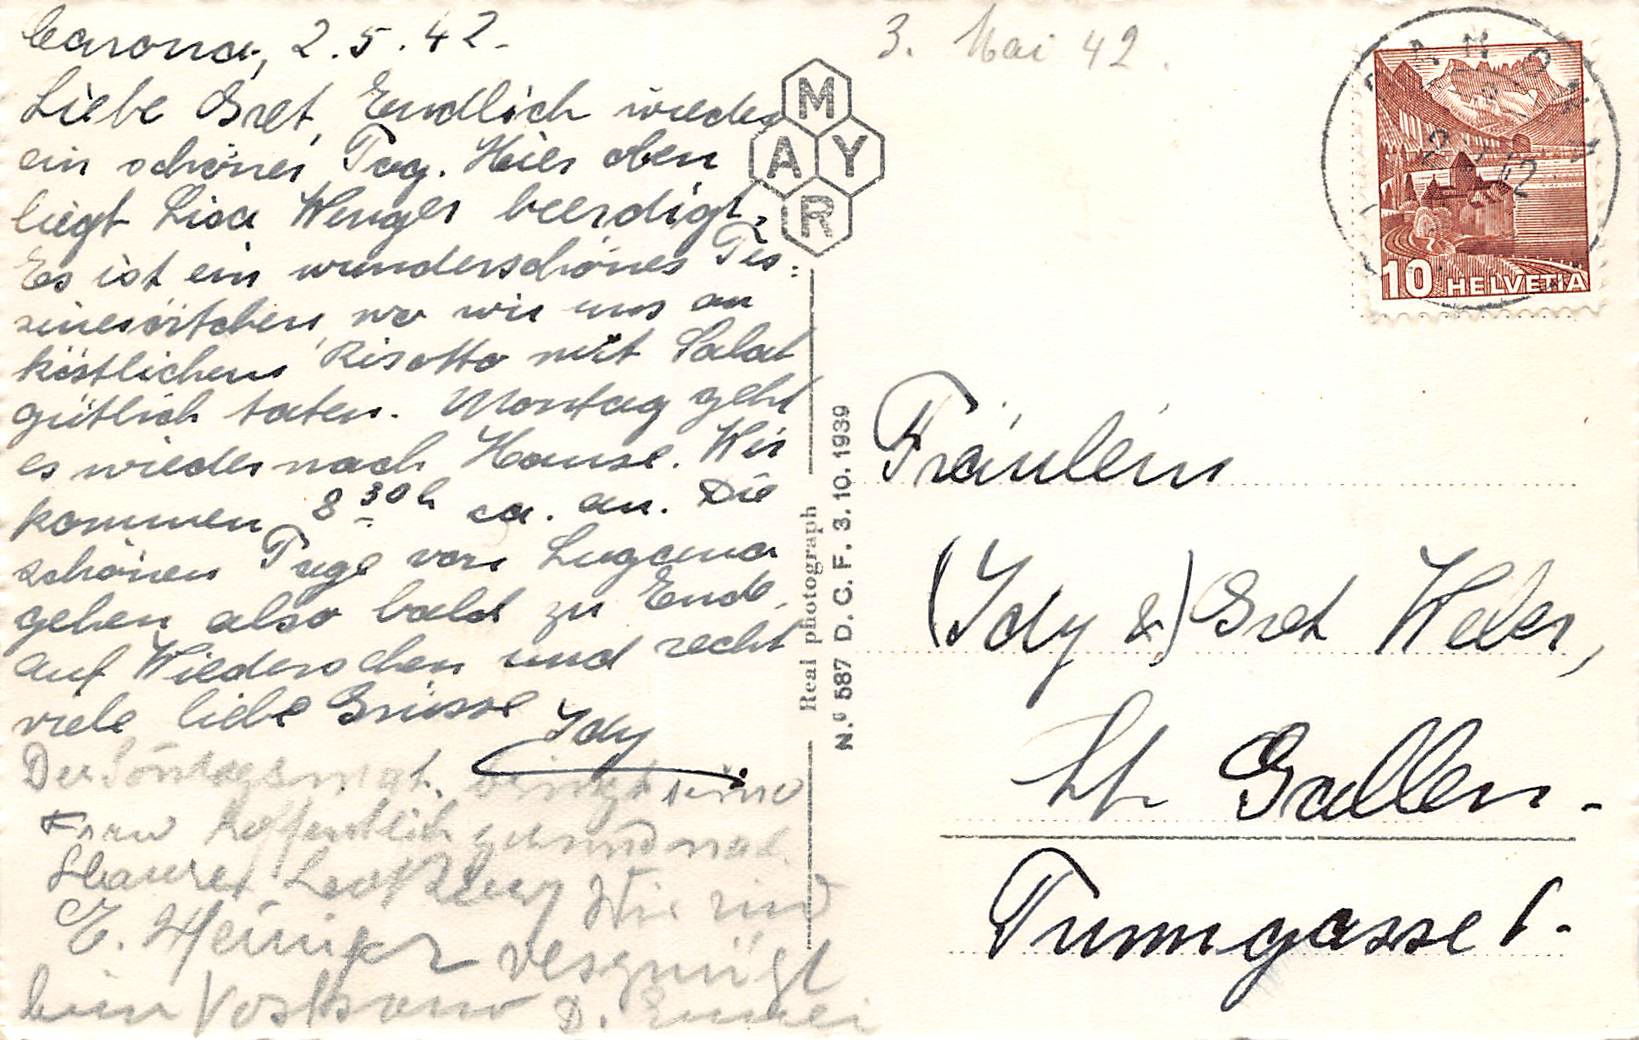 Carona, 2.5.42.
Liebe Gret, Endlich wieder
ein schöner Tag. Hier oben
liegt Lisa Wenger beerdigt.
Es ist ein wunderschönes Tes:
sinerörtchen, wo wir uns an
köstlichem Risotto mit Salat
gütlich taten. Montag geht
es wieder nach Hause. Wir
kommen 8 30h ca. an. Die
schönen Tage von Lugano
gehen also bald zu Ende,
auf Wiedersehen und recht
viele liebe Grüsse Idy
Der bringt seine
Frau hoffentlich gesund nach
Wir sind
E. vergnügt
beim D.
3. Mai 42.
MAYR
Real photograph
N.º 587 D. C. F. 3. 10. 1939
CARONA
2.V.42
10 HELVETIA
Fräulein
(Idy &) Gret Weber,
St. Gallen.
Turmgasse 1.